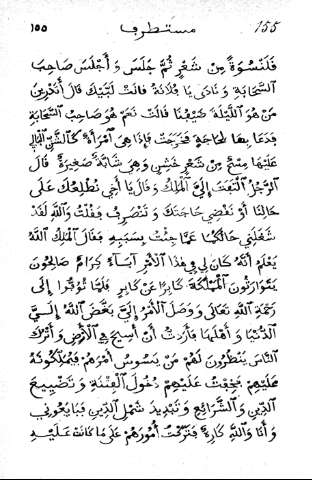 ١٥٥ مستطرف 155
قَلَنْسُوَةً مِنْ شَعْرٍ ثُمَّ جَلَسَ وَ أَجْلَسَ صَاحِبَ
السَّحَابَةِ وَ نَادَى يَا فُلَانَةُ قالَتْ لَبَّيْكَ قَالَ أَتَدْرِينَ
مَنْ هُوَ اللَّيْلَةَ ضَيْفُنَا قَالَتْ نَعَمْ هُوَ صَاحِبُ السَّحَابَةِ
فَدَعَا بِهَا لِحَاجَةٍ فَخَرَجَتْ فَإِذَا هِيَ امْرَأَةٌ كَالشَّنِّ الْبَالِي
عَلَيْهَا مِسْحٌ مِنْ شَعْرٍ خَشِنٍ وَ هِيَ شَابَّةٌ صَغِيرَةٌ قَالَ
الرَّجُلُ الْتَفَتَ إِلَيَّ الْمَلِكُ وَ قَالَ يَا أَخِي نُطْلِعُكَ عَلَى
حَالِنَا أَوْ نَقْضِي حَاجَتَكَ وَ تَنْصَرِفُ فَقُلْتُ وَ اللَّهِ لَقَدْ
شَغَلَنِي حَالُكُمَا عَمَّا جِئْتُ بِسَبَبِهِ فَقَالَ الْمَلِكُ اللَّهُ
يَعْلَمُ أَنَّهُ كَانَ لِي فِي هَذَا الْأَمْرِ آبَاءٌ كِرَامٌ صَالِحُونَ
يَتَوَارَثُونَ الْمَمْلَكَةَ كَابِرًا عَنْ كَابِرٍ فَلَمَّا تُوُفُّوا إِلَى
رَحْمَةِ اللَّهِ تَعَالَى وَ وَصَلَ الْأَمْرُ إِلَيَّ بَغَّضَ اللَّهُ إِلَيَّ
الدُّنْيَا وَ أَهْلَهَا فَأَرَدْتُ أَنْ أَسِيحَ فِي الْأَرْضِ وَ أَتْرُكَ
النَّاسَ يَنْظُرُونَ لَهُمْ مَنْ يَسُوسُ أَمْرَهُمْ فَيُمَلِّكُونَهُ
عَلَيْهِمْ فَخِفْتُ عَلَيْهِمْ دُخُولَ الْفِتْنَةِ وَ تَضْيِيعَ
الدِّينِ وَ الشَّرَائِعِ وَ تَبْدِيدَ شَمْلِ الدِّينِ فَبَايَعُونِي
وَ أَنَا وَ اللَّهِ كَارِهٌ فَتَرَكْتُ أُمُورَهُمْ عَلَى مَا كَانَتْ عَلَيْهِ